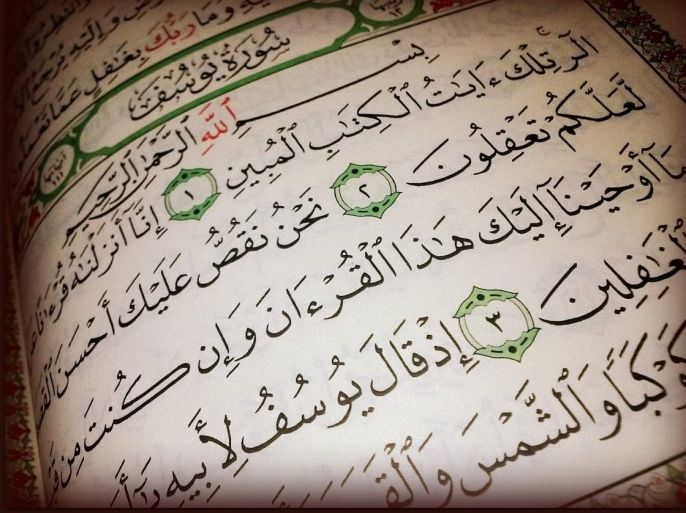 وَإِلَيْهِ يُرْجَعُ
وَمَا رَبُّكَ بِغَٰفِلٍ عَمَّا
سُورَةُ يُوسُفَ
بِسْمِ ٱللَّهِ ٱلرَّحْمَٰنِ ٱلرَّحِيمِ
الٓر تِلْكَ ءَايَٰتُ ٱلْكِتَٰبِ ٱلْمُبِينِ ١ إِنَّآ أَنزَلْنَٰهُ قُرْءَٰنًا
لَّعَلَّكُمْ تَعْقِلُونَ ٢ نَحْنُ نَقُصُّ عَلَيْكَ أَحْسَنَ
أَوْحَيْنَآ إِلَيْكَ هَٰذَا ٱلْقُرْءَانَ وَإِن كُنتَ مِن
ٱلْغَٰفِلِينَ ٣ إِذْ قَالَ يُوسُفُ لِأَبِيهِ
كَوْكَبًا وَٱلشَّمْسَ